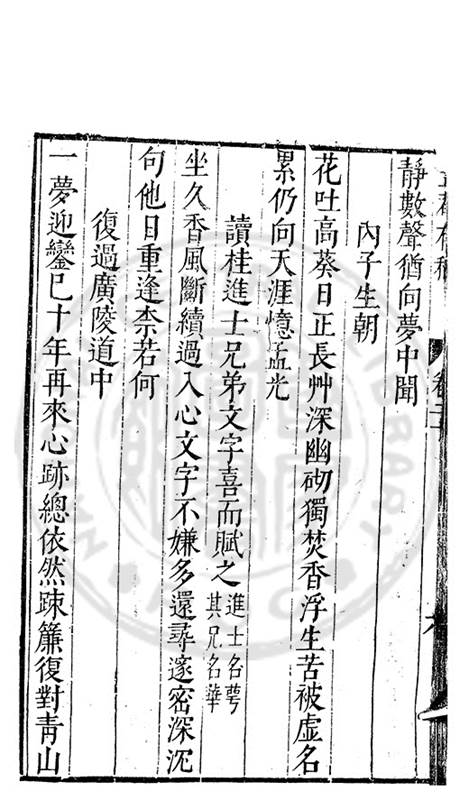 靜數聲猶向夢中聞
內子生朝
花吐高葵日正長艸深幽砌獨焚香浮生苦被虛名
累仍向天涯憶孟光
讀桂進士兄弟文字喜而賦之進士名萼其兄名華
坐久香風斷續過入心文字不嫌多還尋邃密深沉
句他日重逢柰若何
復過廣陵道中
一夢迎鑾已十年再來心跡總依然踈簾復對青山